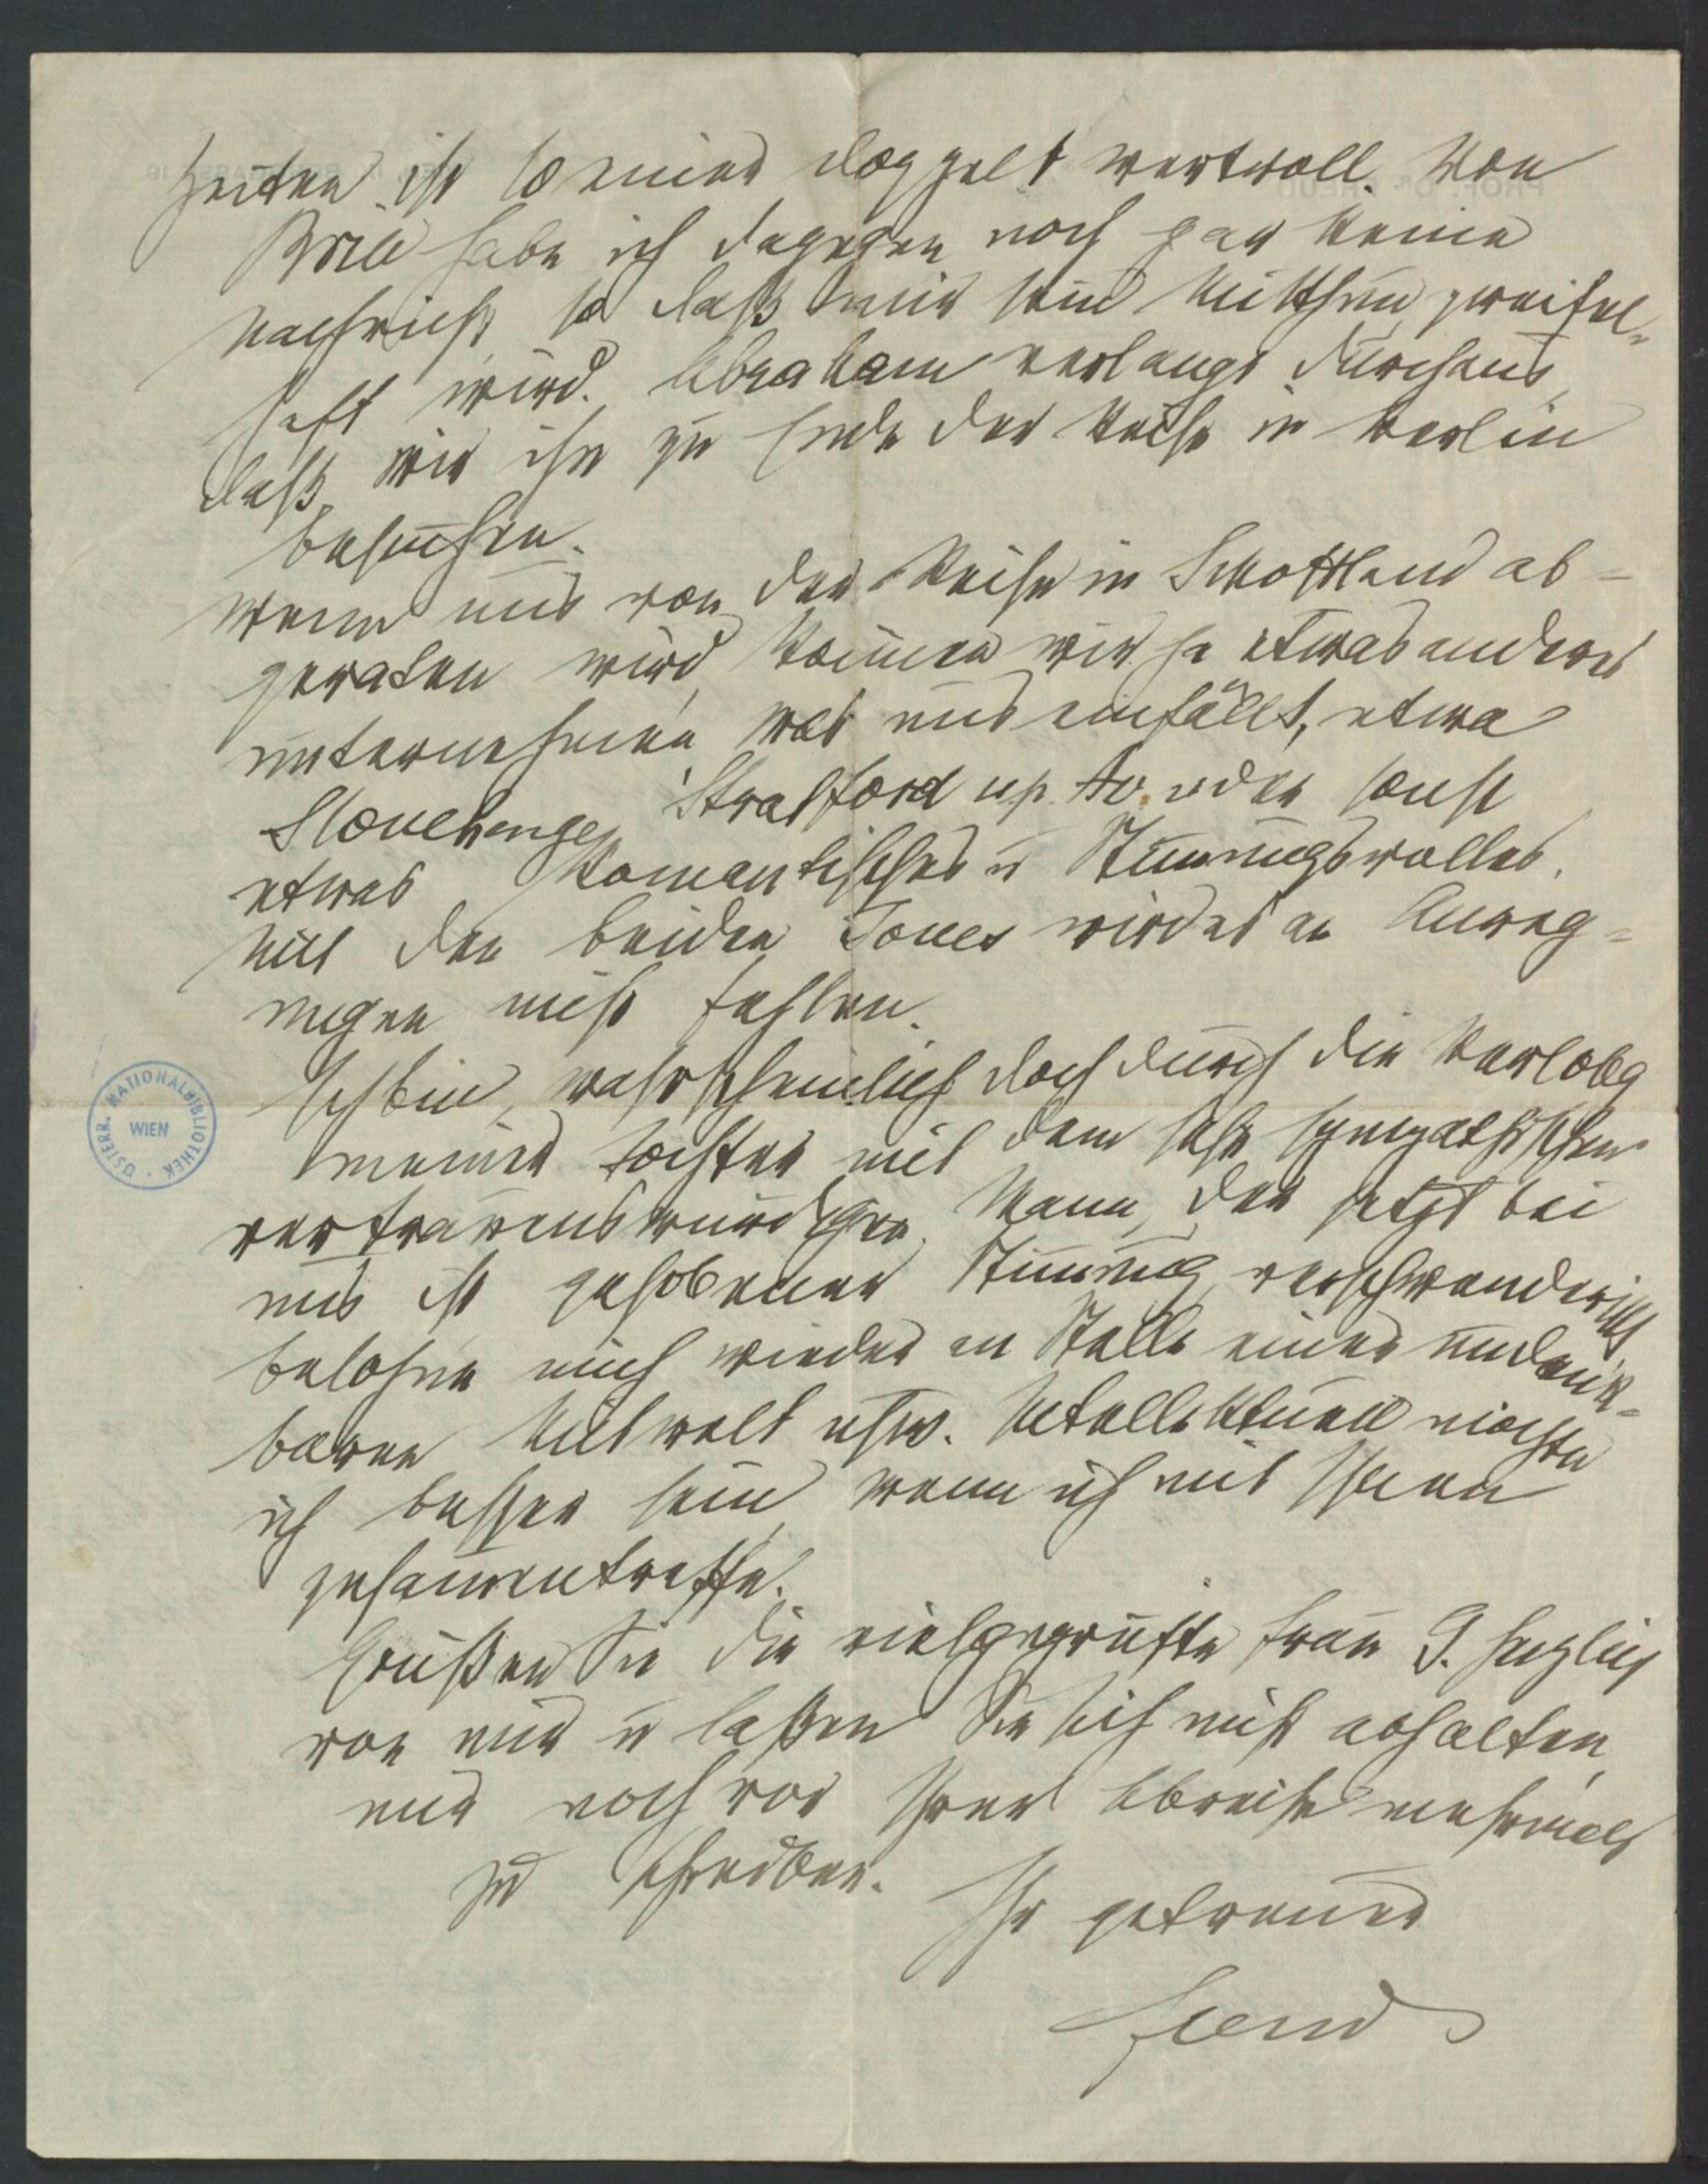 Zeiten ist so einer doppelt wertvoll. Von
Brill habe ich dagegen noch gar keine
Nachricht, so daß mir sein Mitthun zweifel-
haft wird. Abraham verlangt durchaus,
daß wir ihn zu Ende der Reise in Berlin
besuchen.
Wenn uns von der Reise in Schottland ab-
geraten wird, können wir ja etwas anderes
unternehmen, was uns einfällt, etwa
Stonehenge, Stratford up. Av. oder sonst
etwas Romantisches u Stimmungsvolles.
Mit den beiden Jones wird es an Anreg-
ungen nicht fehlen.
Ich bin, wahrscheinlich doch durch die Verlobg
meiner Tochter mit dem sehr sympathischen
vertrauenswürdigen Mann, der jetzt bei
uns ist gehobener Stimmung, verschwenderisch
belohne mich wieder an Stelle einer undank-
baren Mitwelt usw. Intellektuell möchte
ich besser sein, wenn ich mit Ihnen
zusammentreffe.
Grüßen Sie die vielgeprüfte Frau G. herzlich
von mir u laßen Sie sich nicht abhalten,
mir noch vor Ihrer Abreise mehrmals
zu schreiben.
Ihr getreuer
Freud
ÖSTERR. NATIONALBIBLIOTHEK · WIEN